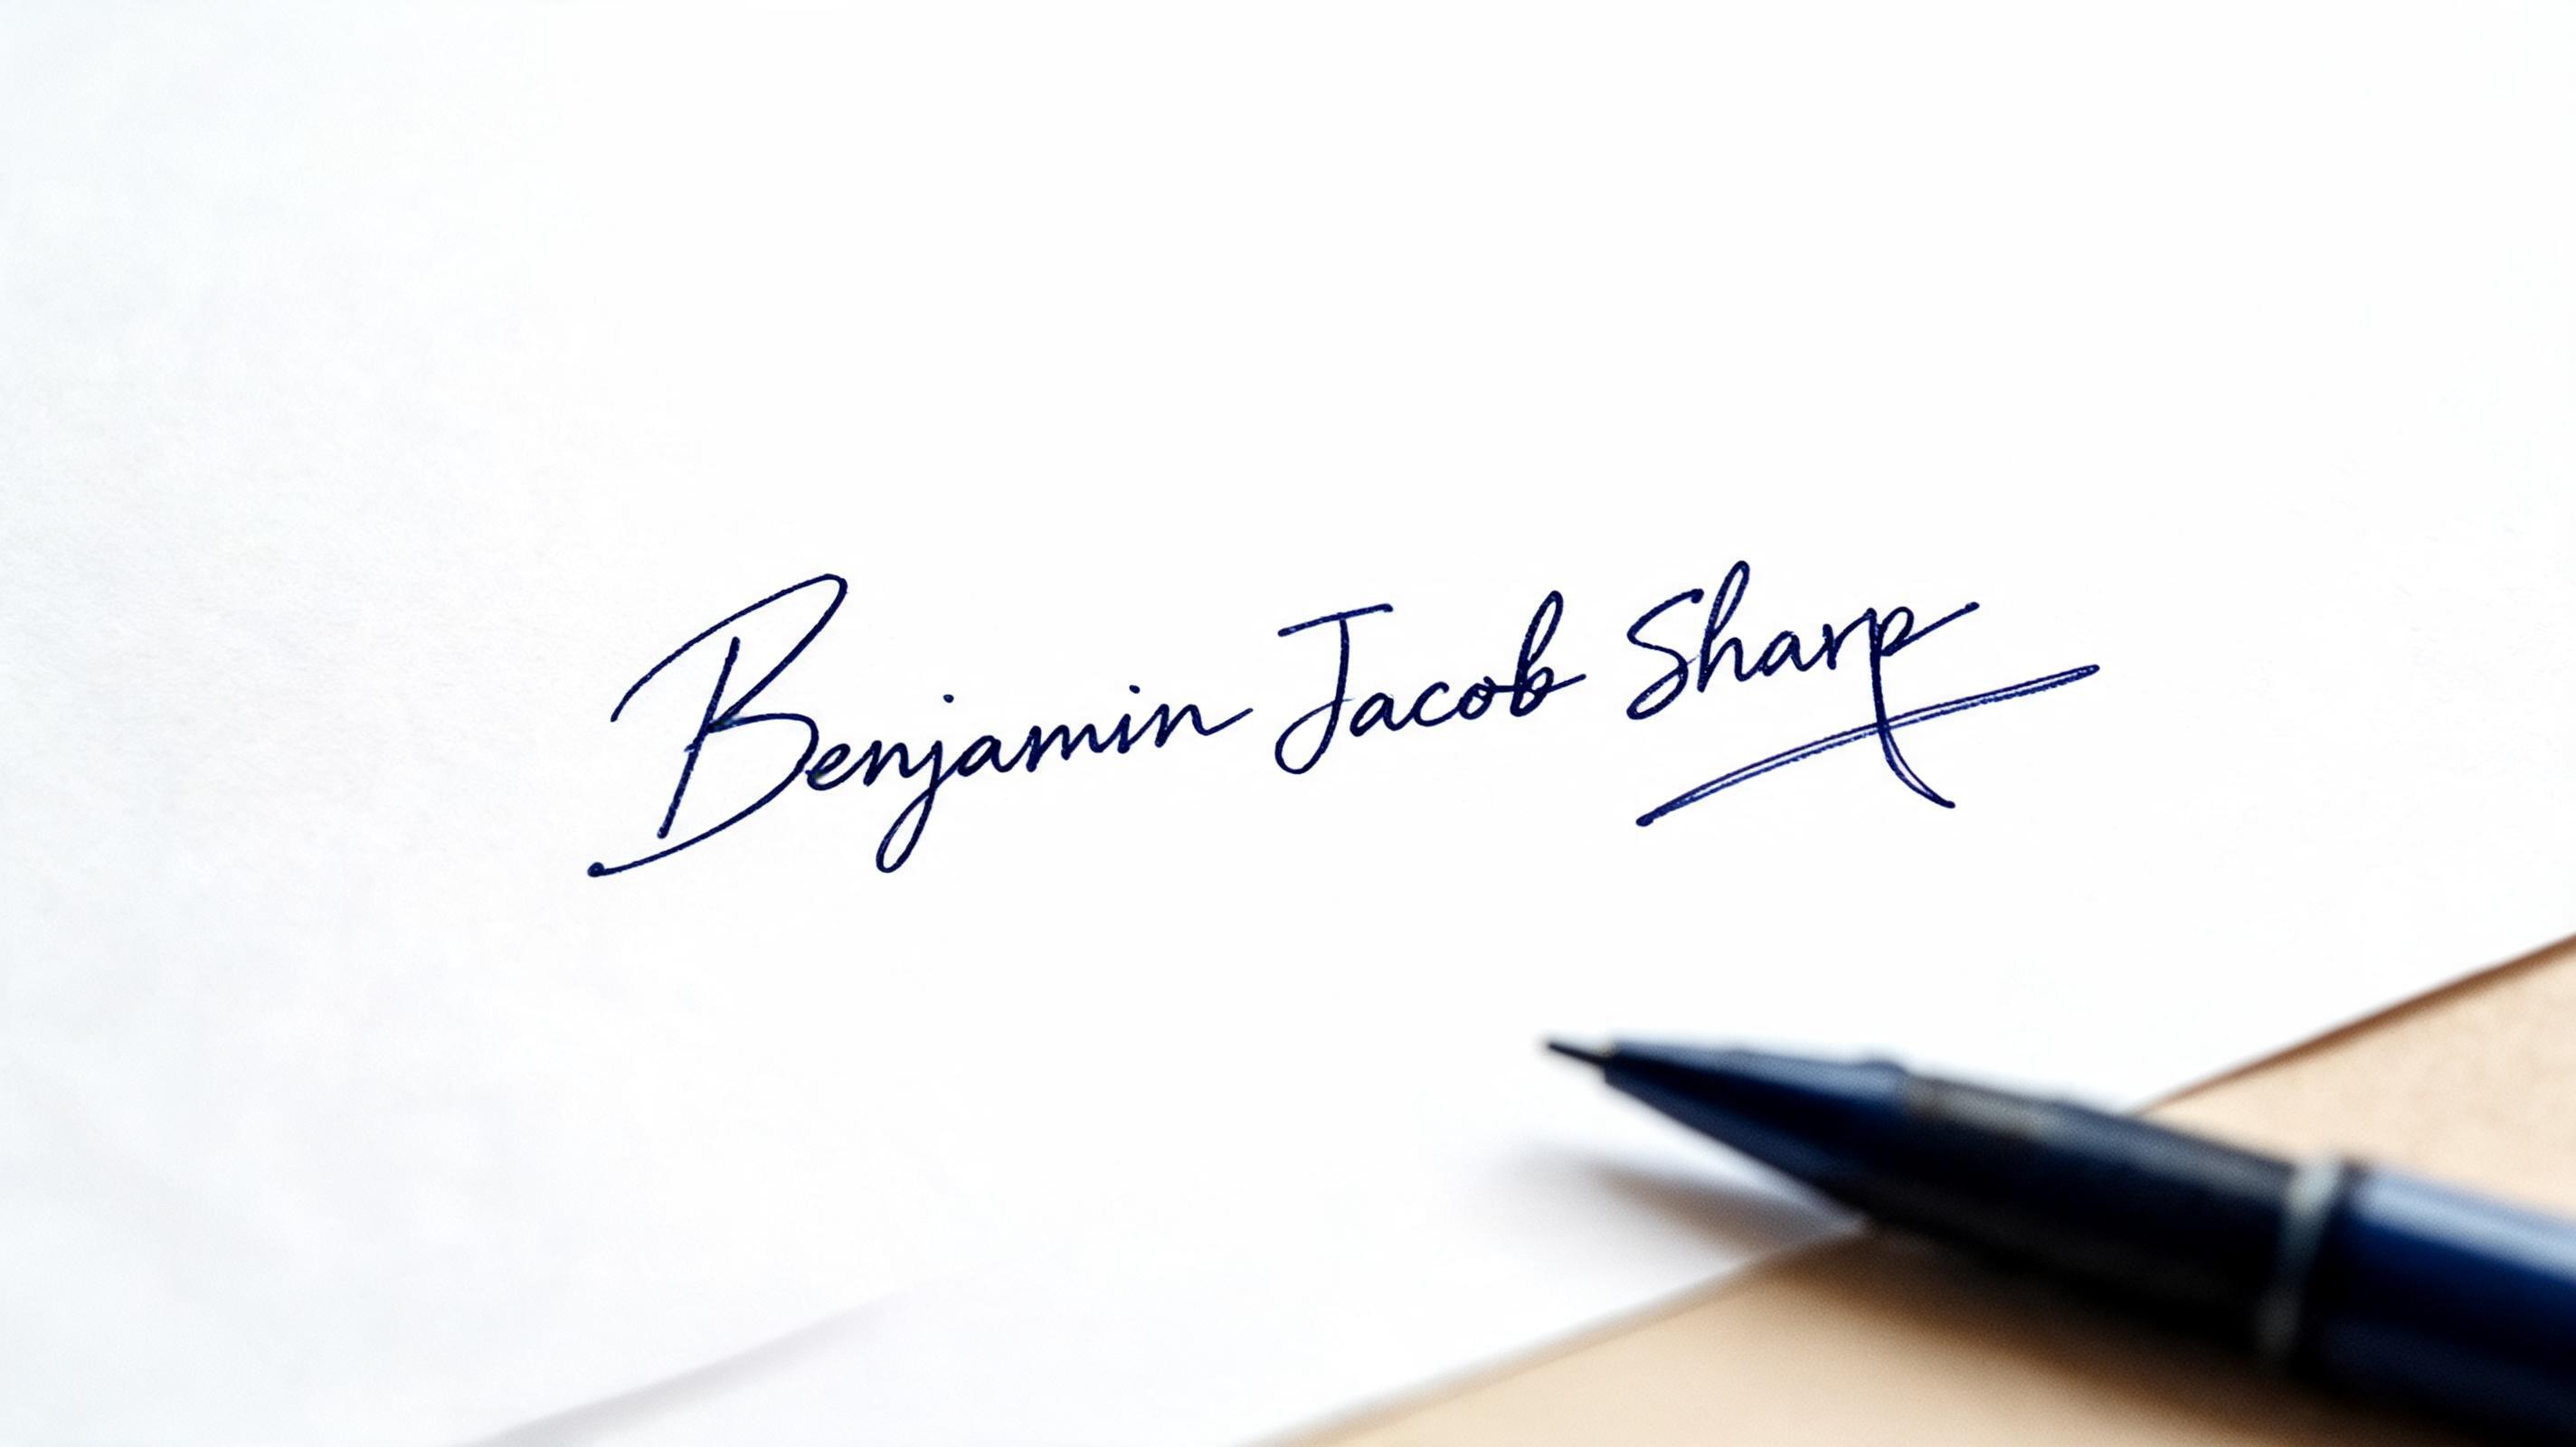 Benjamin Jacob Sharp